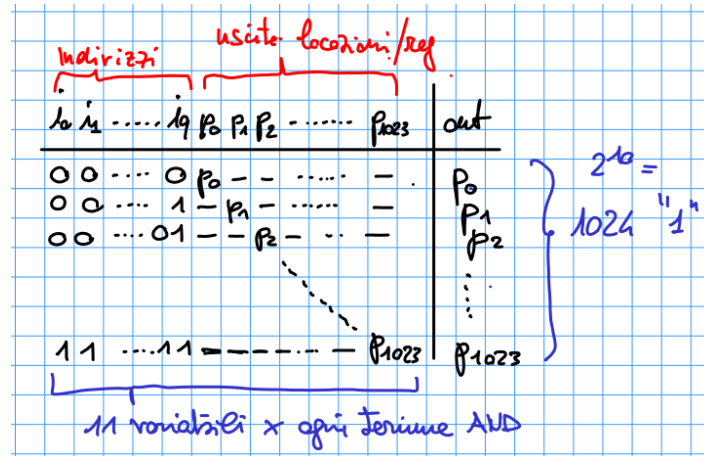 indirizzi uscite locazioni/reg
i0 i1 ..... i9 p0 p1 p2 ------- p1023 out
0 0 .... 0 p0 - - ... ... - p0
0 0 .... 1 - p1 - ...... - p1
0 0 .... 01 - - p2 - .. - p2
2^10 =
1024 "1"
11 ....11 - - - - - ... - p1023 p1023
11 variabili x ogni termine AND